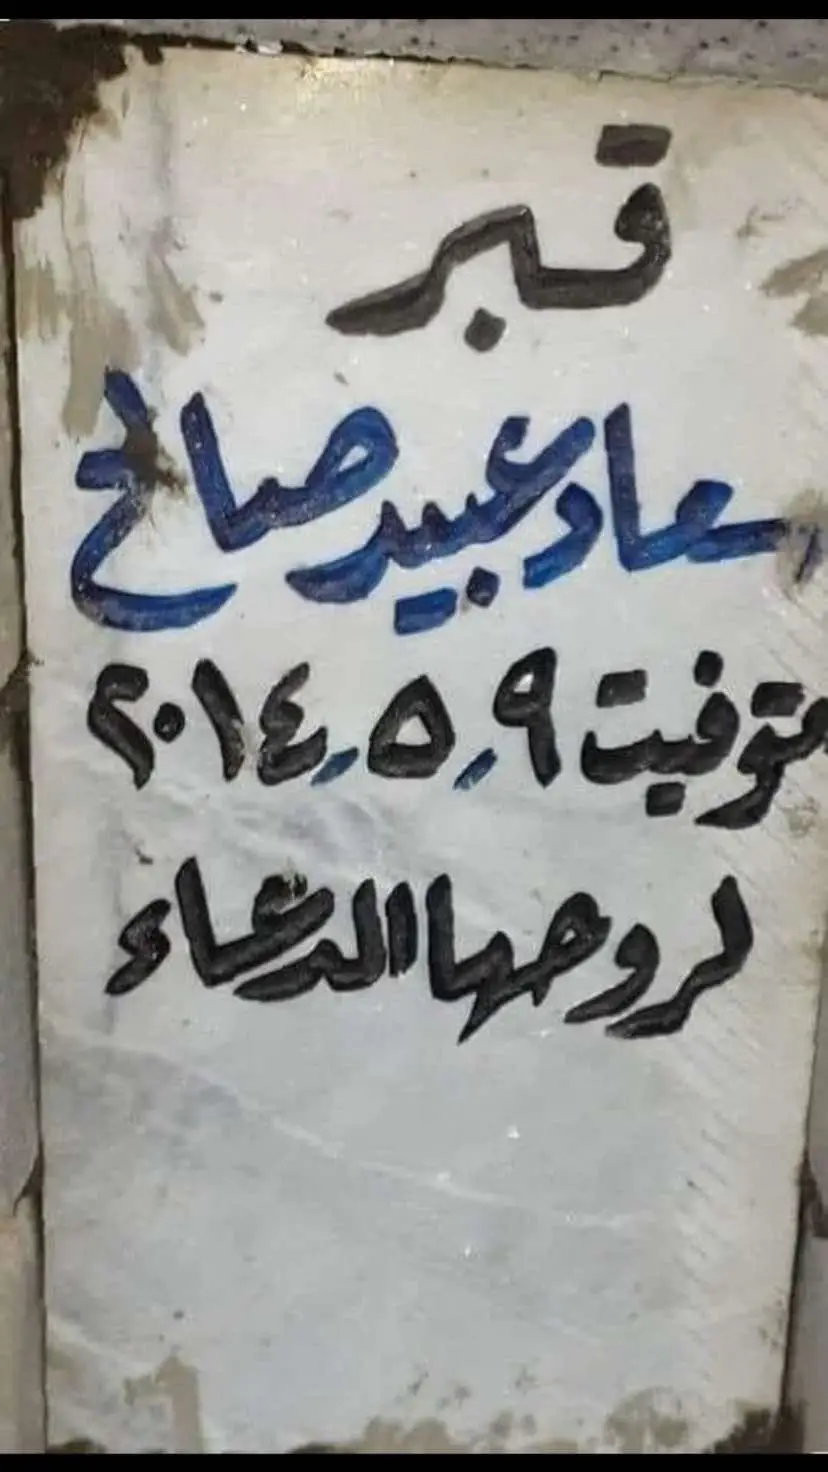 قبر
سعاد عبيد صالح
توفيت ٩ . ٥ . ٢٠١٤
لروحها الدعاء